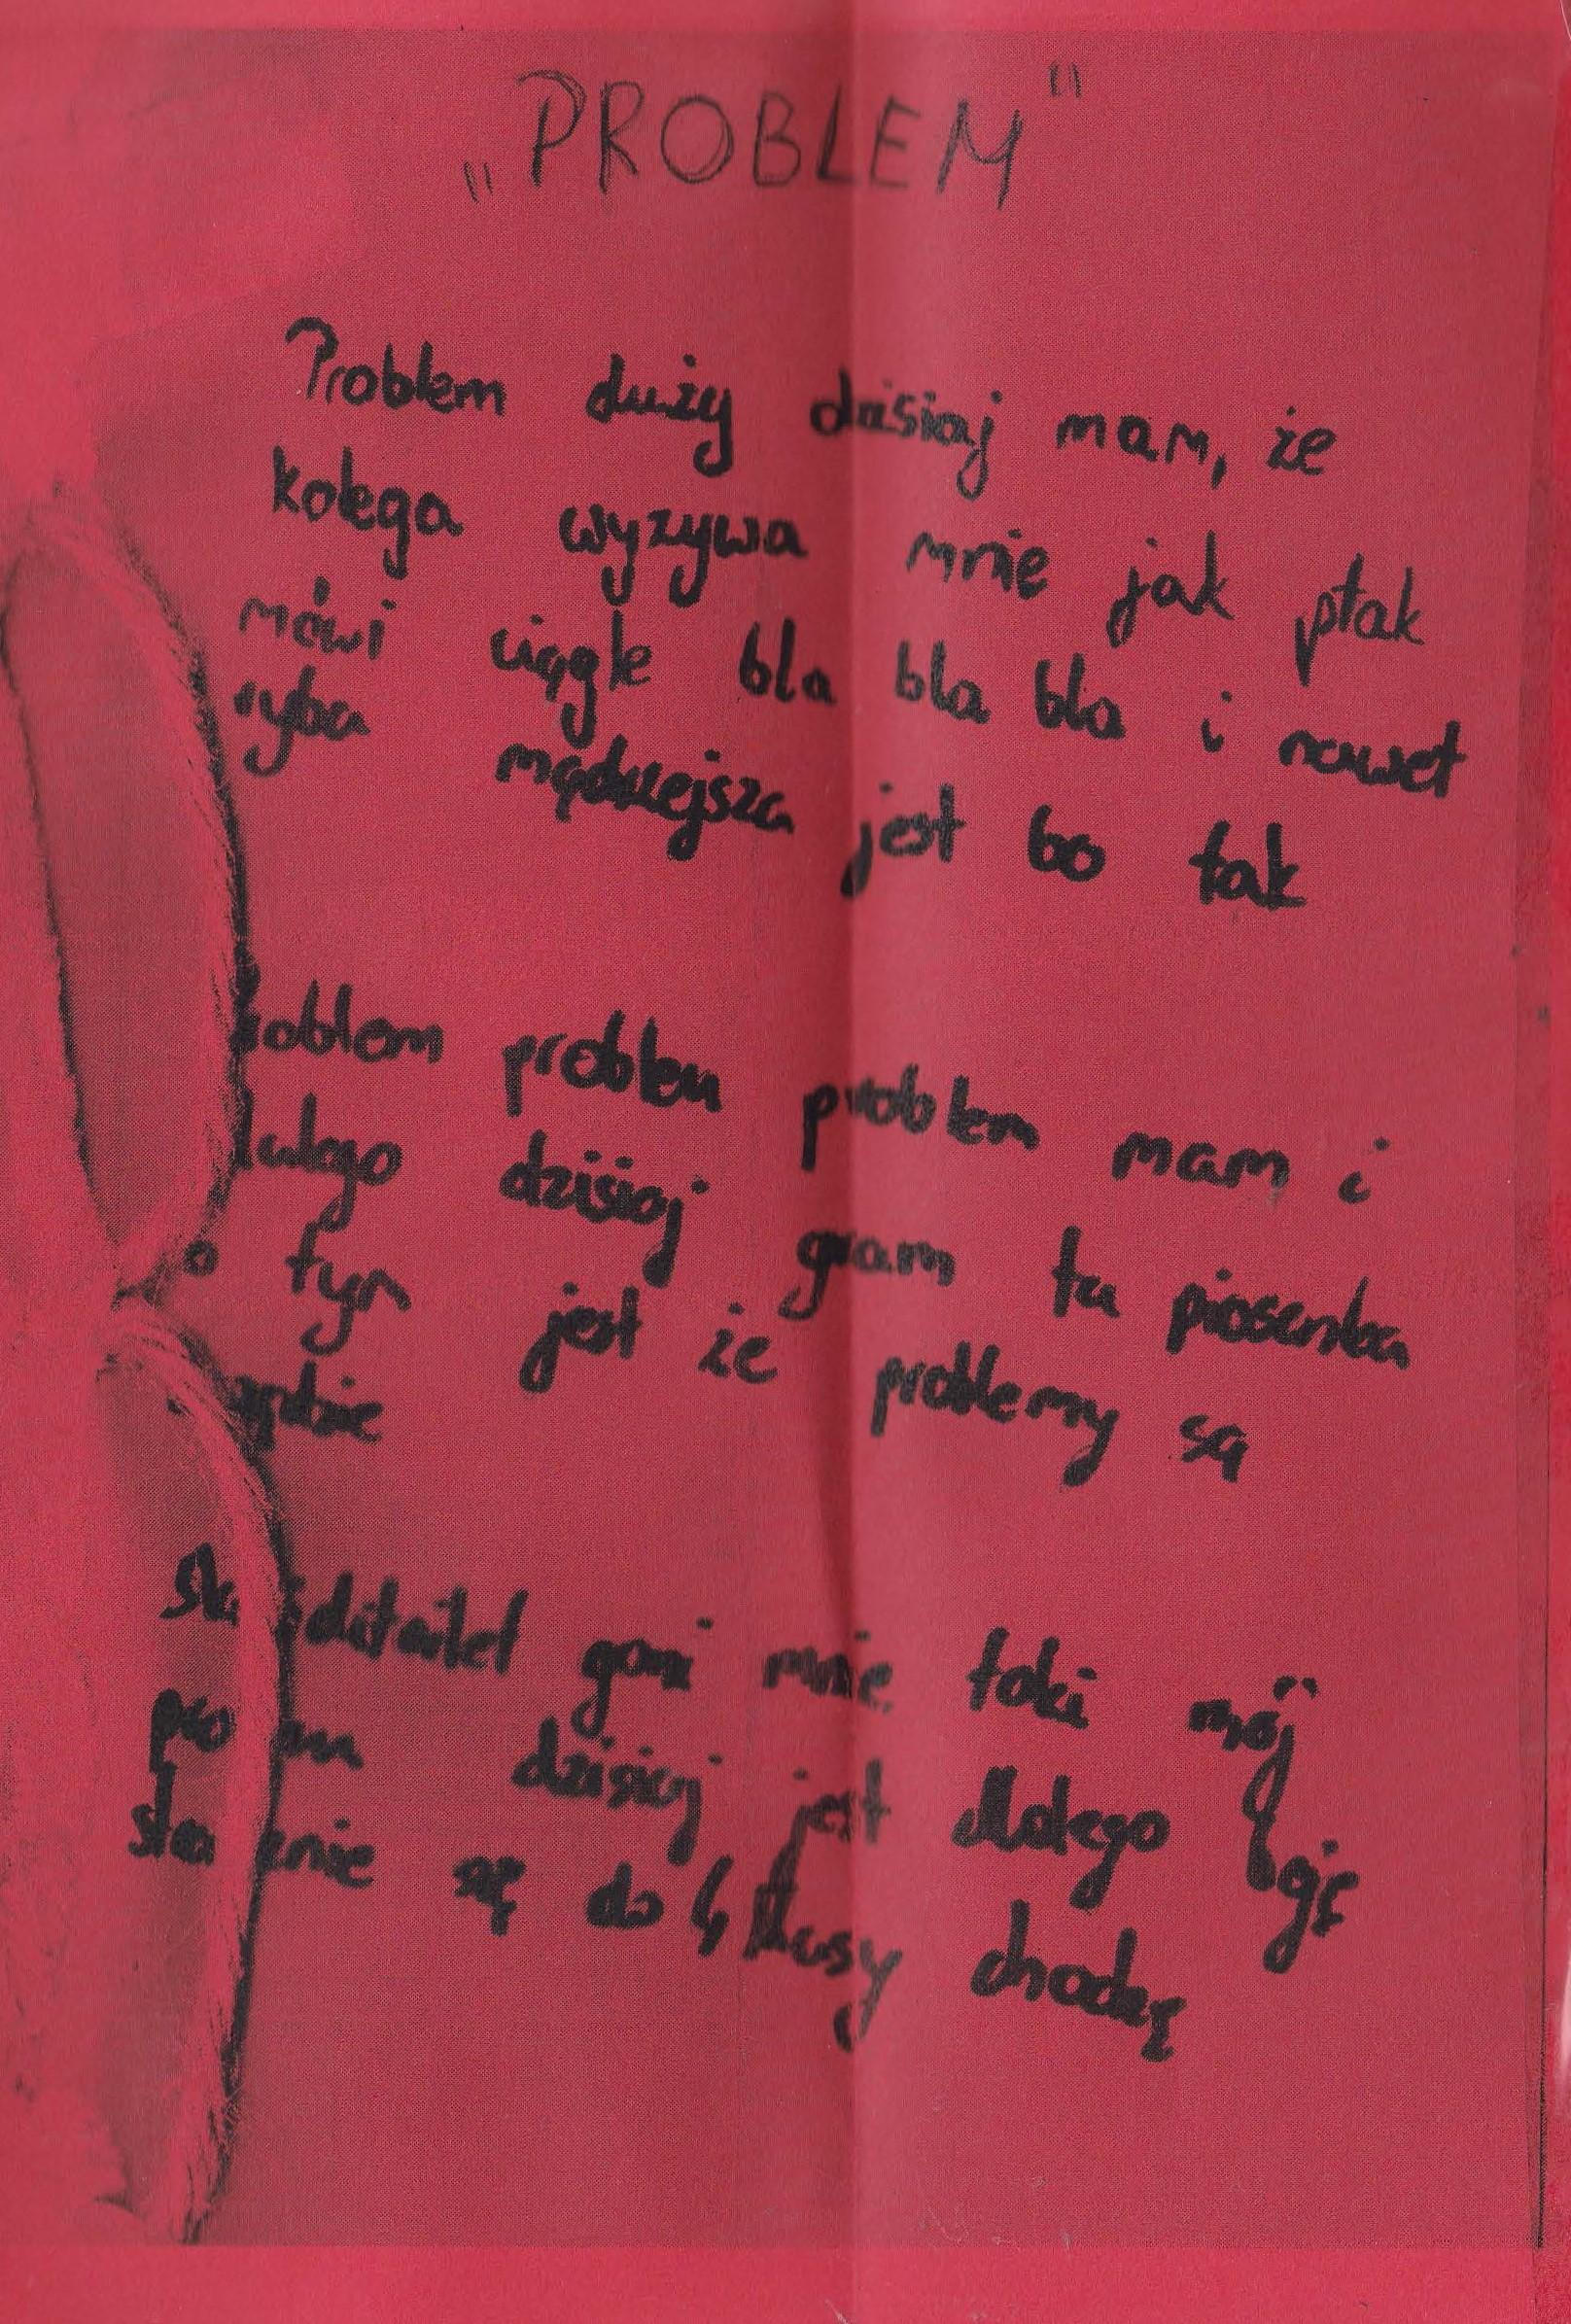 „PROBLEM"
Problem duży dzisiaj mam, że
kolega wyzywa mnie jak ptak
mówi ciągle bla bla bla i nawet
ryba mądrzejsza jest bo tak
problem problem problem mam i
dlatego dzisiaj gram ta piosenka
o tym jest że problemy są
goni mnie taki mój
dzisiaj jest dlatego
się do 4 klasy chodzę